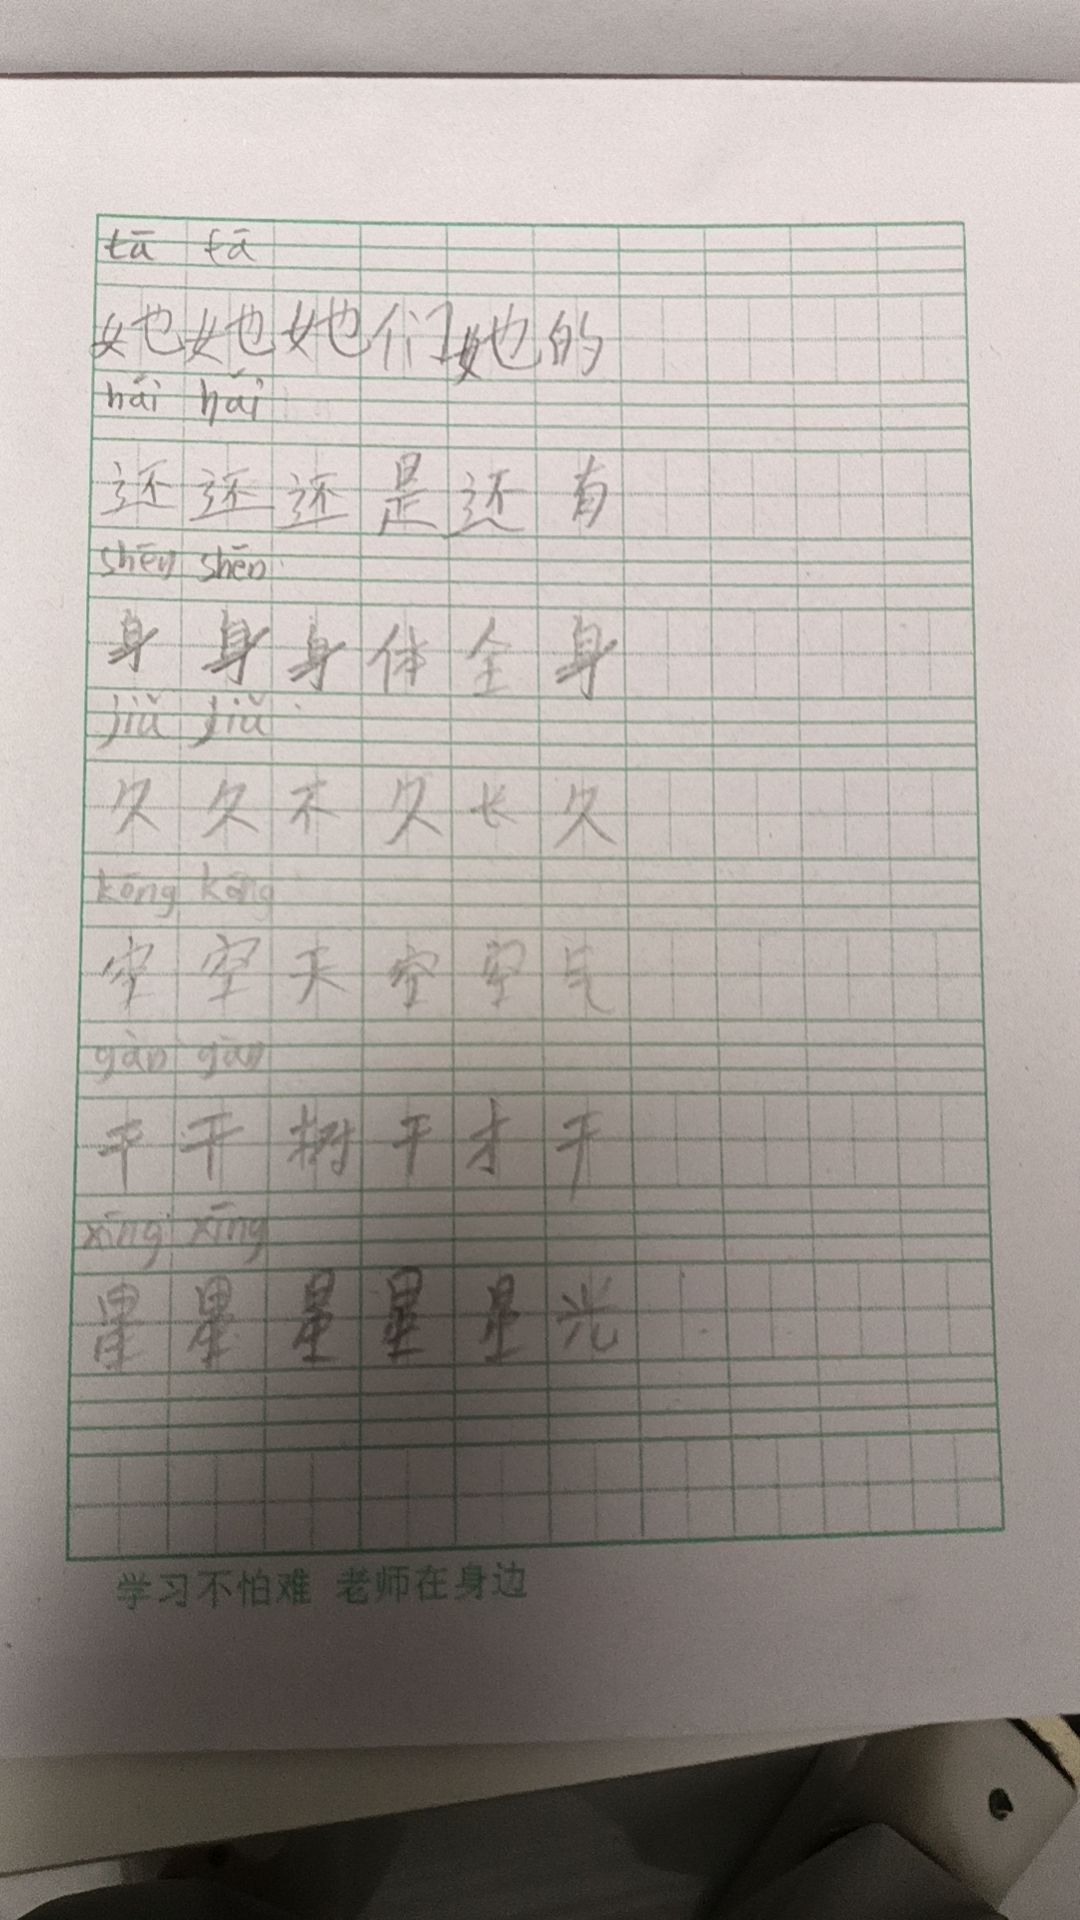 tā tā
她她她们她的
hái hái
还还还是还有
shēn shēn
身身身体全身
jiǔ jiǔ
久久不久长久
kōng kōng
空空天空空气
gàn gàn
干干树干才干
xīng xīng
星星星星星光
学习不怕难 老师在身边